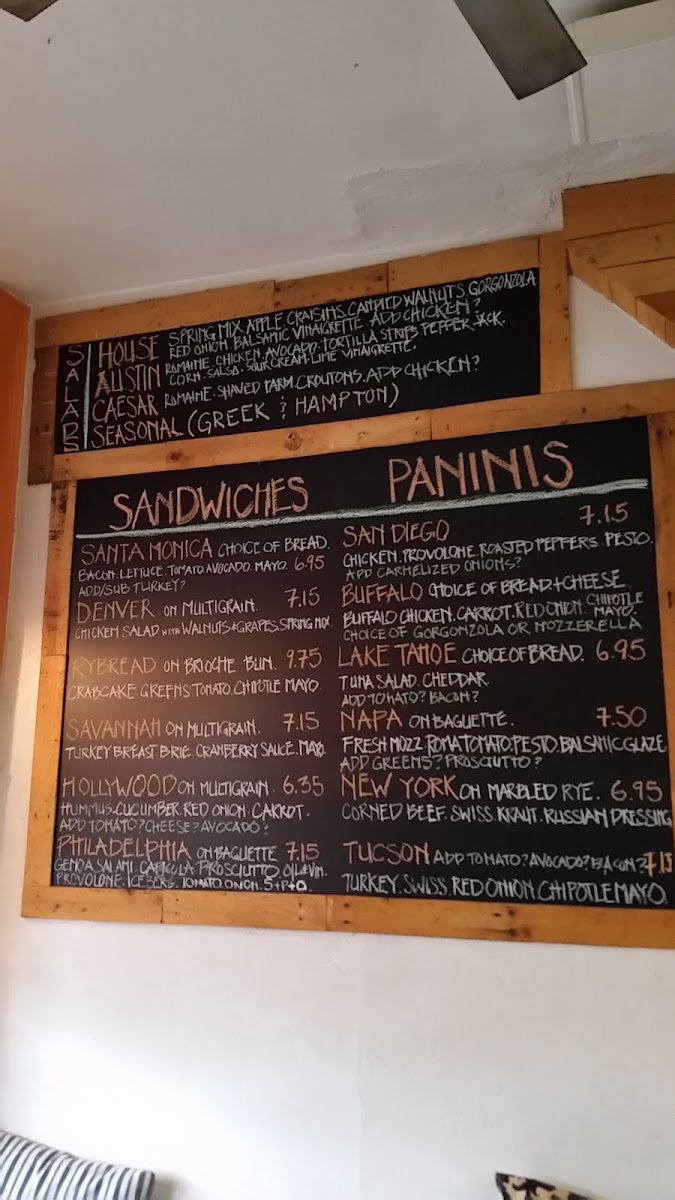 SALADS
HOUSE SPRING MIX. APPLE. CRAISINS. CANDIED WALNUTS. GORGONZOLA
RED ONION. BALSAMIC VINAIGRETTE. ADD CHICKEN?
AUSTIN ROMAINE. CHICKEN. AVOCADO. TORTILLA STRIPS. PEPPER JACK.
CORN. SALSA. SOUR CREAM. LIME VINAIGRETTE.
CAESAR ROMAINE. SHAVED PARM. CROUTONS. ADD CHICKEN?
SEASONAL (GREEK & HAMPTON)
SANDWICHES
SANTA MONICA CHOICE OF BREAD.
BACON. LETTUCE. TOMATO. AVOCADO. MAYO. 6.95
ADD/SUB TURKEY?
DENVER ON MULTIGRAIN. 7.15
CHICKEN SALAD WITH WALNUTS+GRAPES. SPRING MIX.
RYBREAD ON BRIOCHE BUN. 9.75
CRABCAKE. GREENS. TOMATO. CHIPOTLE MAYO
SAVANNAH ON MULTIGRAIN. 7.15
TURKEY BREAST. BRIE. CRANBERRY SAUCE. MAYO
HOLLYWOOD ON MULTIGRAIN. 6.35
HUMMUS. CUCUMBER. RED ONION. CARROT.
ADD TOMATO? CHEESE? AVOCADO?
PHILADELPHIA ON BAGUETTE 7.15
GENOA SALAMI. CAPICOLA. PROSCIUTTO. OIL & VIN.
PROVOLONE. ICEBERG. TOMATO. ONION. S+P+O.
PANINIS
SAN DIEGO 7.15
CHICKEN. PROVOLONE. ROASTED PEPPERS. PESTO.
ADD CARMELIZED ONIONS?
BUFFALO CHOICE OF BREAD+CHEESE.
BUFFALO CHICKEN. CARROT. RED ONION. CHIPOTLE MAYO.
CHOICE OF GORGONZOLA OR MOZZERELLA
LAKE TAHOE CHOICE OF BREAD. 6.95
TUNA SALAD. CHEDDAR.
ADD TOMATO? BACON?
NAPA ON BAGUETTE. 7.50
FRESH MOZZ. ROMA TOMATO. PESTO. BALSAMIC GLAZE.
ADD GREENS? PROSCIUTTO?
NEW YORK ON MARBLED RYE. 6.95
CORNED BEEF. SWISS. KRAUT. RUSSIAN DRESSING
TUCSON ADD TOMATO? AVOCADO? BACON? 7.15
TURKEY. SWISS. RED ONION. CHIPOTLE MAYO.